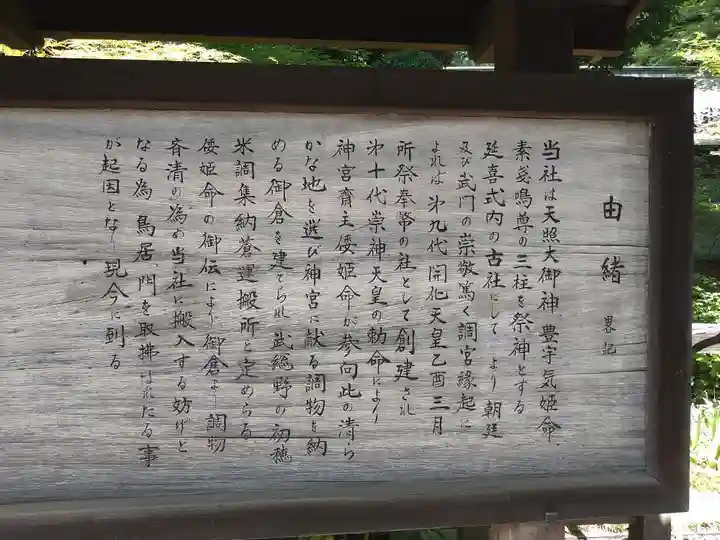 由緒 畧記
当社は天照大御神、豊宇気姫命、
素戔鳴尊の三柱を祭神とする
延喜式内の古社にして より朝廷
及び武門の崇敬篤く調宮縁起に
よれば 第九代開化天皇乙酉三月
所祭奉幣の社として創建され
第十代崇神天皇の勅命により
神宮齋主倭姫命が参向此の清ら
かな地を選び神宮に献る調物を納
める御倉を建てられ 武総野の初穂
米調集納蒼運搬所と定めらる
倭姫命の御伝により御倉より調物
斉清の為め当社に搬入する妨げと
なる為 鳥居、門を取拂はれたる事
が起因となり現今に到る